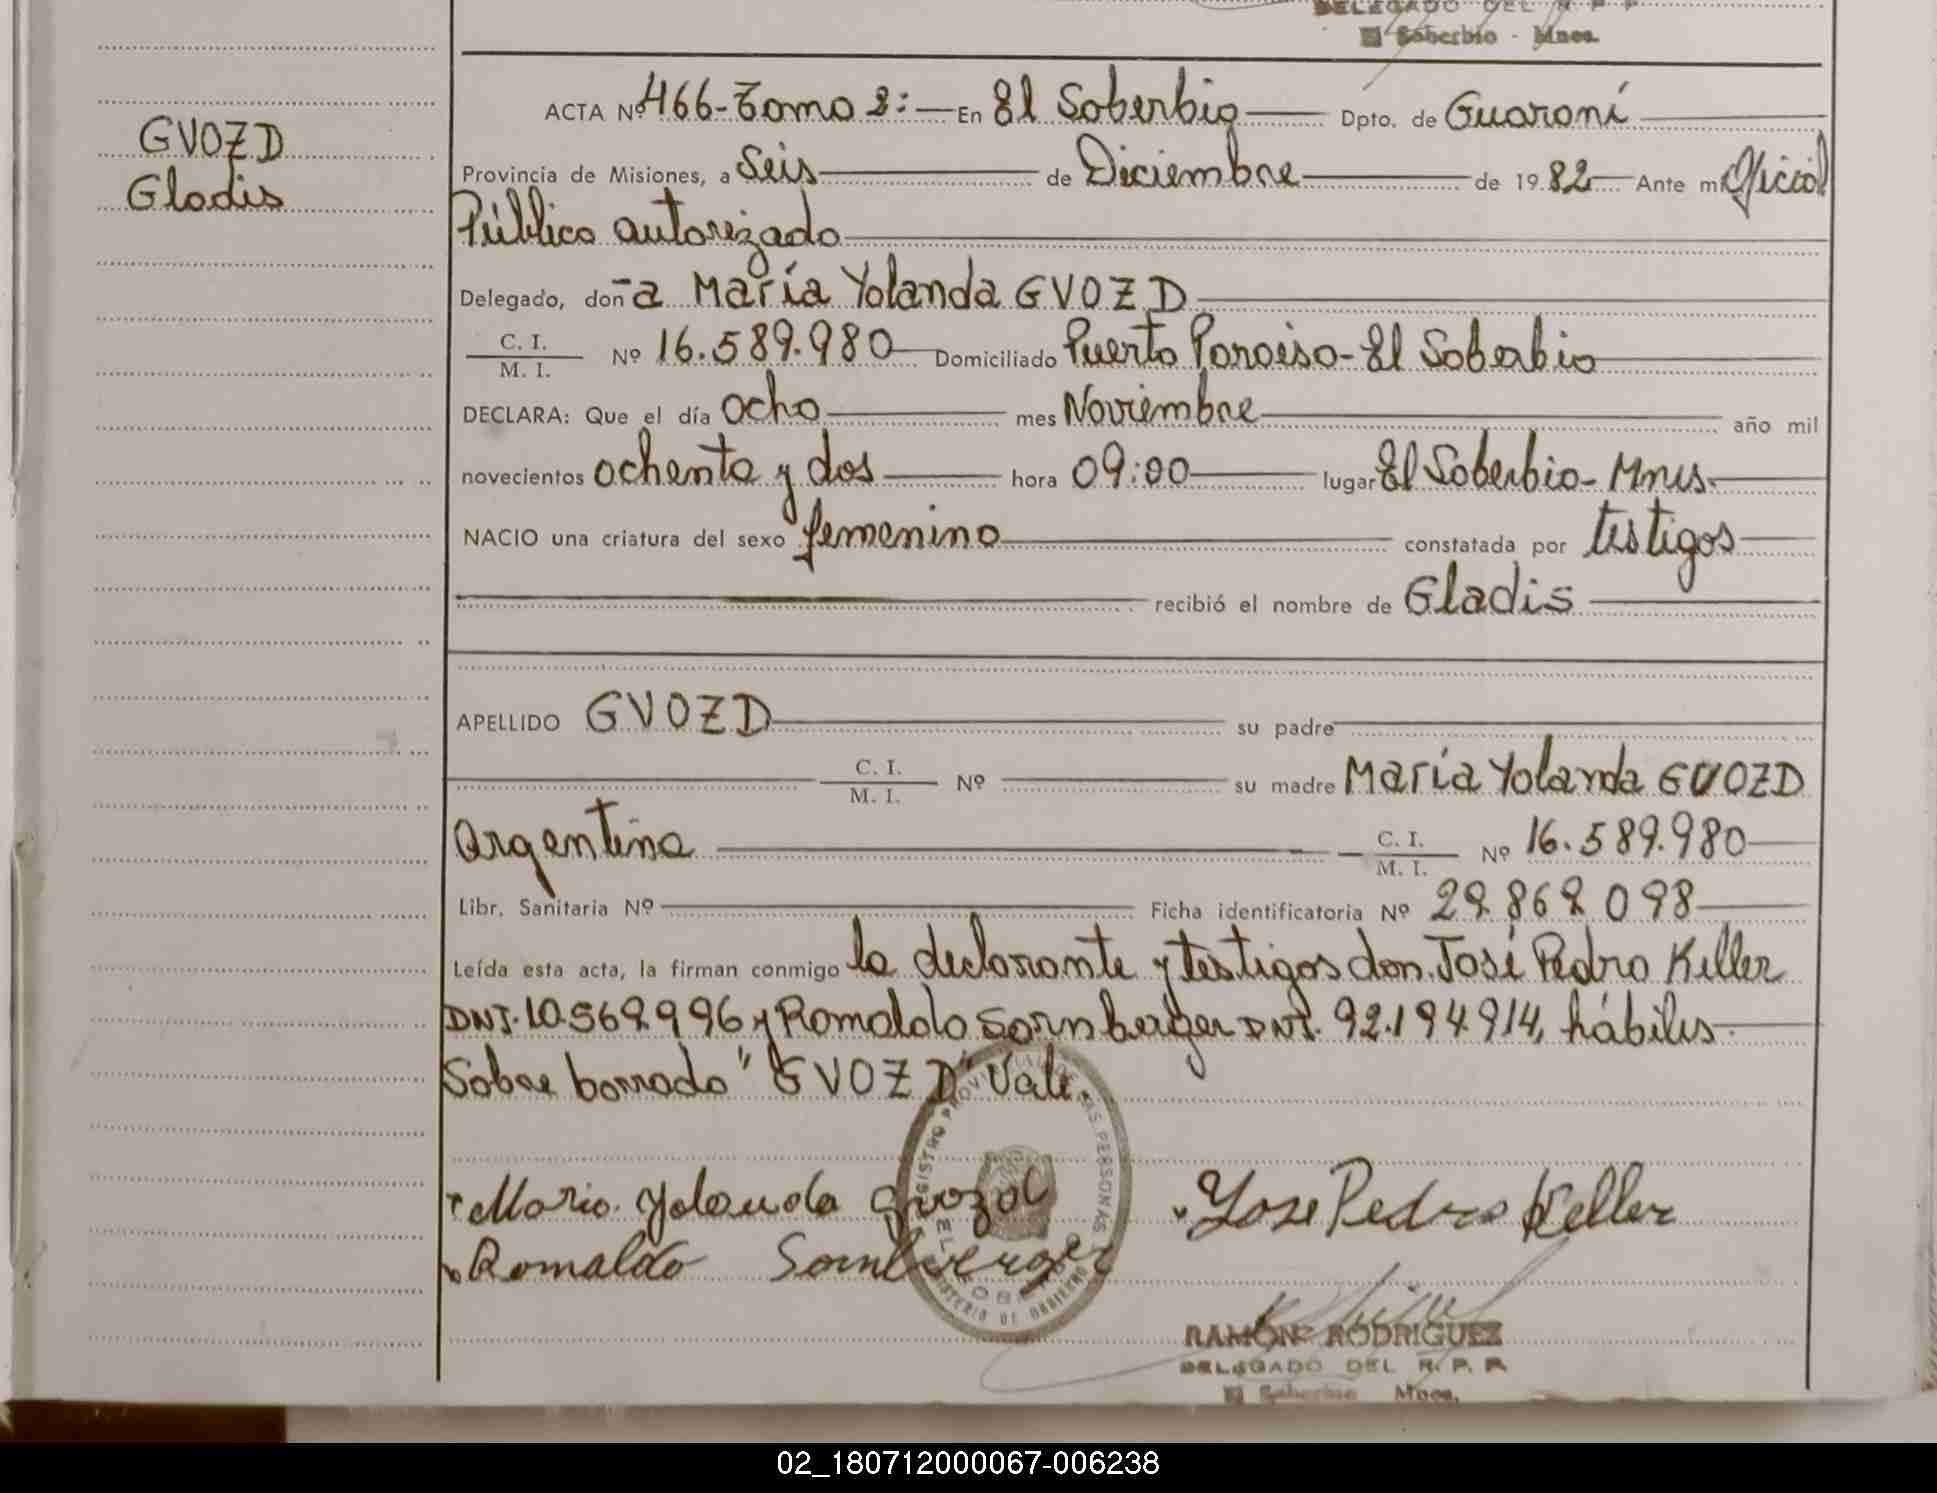 DELEGADO DEL R. P. P.
El Soberbio - Mnes.
GVOZD
Gladis
ACTA Nº 466-Tomo 2: — En El Soberbio Dpto. de Guaraní
Provincia de Misiones, a Seis de Diciembre de 1982 Ante mí Oficial
Público autorizado
Delegado, don-a María Yolanda GVOZD
C. I. / M. I. Nº 16.589.980 Domiciliado Puerto Paraiso-El Soberbio
DECLARA: Que el día ocho mes Noviembre año mil
novecientos ochenta y dos hora 09:00 lugar El Soberbio-Mnes.
NACIO una criatura del sexo femenino constatada por testigos
recibió el nombre de Gladis
APELLIDO GVOZD su padre
C. I. / M. I. Nº su madre María Yolanda GVOZD
argentina C. I. / M. I. Nº 16.589.980
Libr. Sanitaria Nº Ficha identificatoria Nº 29.869.098
Leída esta acta, la firman conmigo la declarante y testigos don José Pedro Keller
DNI. 10.569.996 y Romaldo Sornberger DNI. 92.194.914, hábiles.
Sobre borrado "GVOZD" Vale.
Maria Yolanda Gvozd
Jose Pedro Keller
Romaldo Sornberger
REGISTRO PROVINCIAL DE LAS PERSONAS
MINISTERIO DE GOBIERNO
EL SOBERBIO
RAMON RODRIGUEZ
DELEGADO DEL R. P. P.
El Soberbio Mnes.
02_180712000067-006238